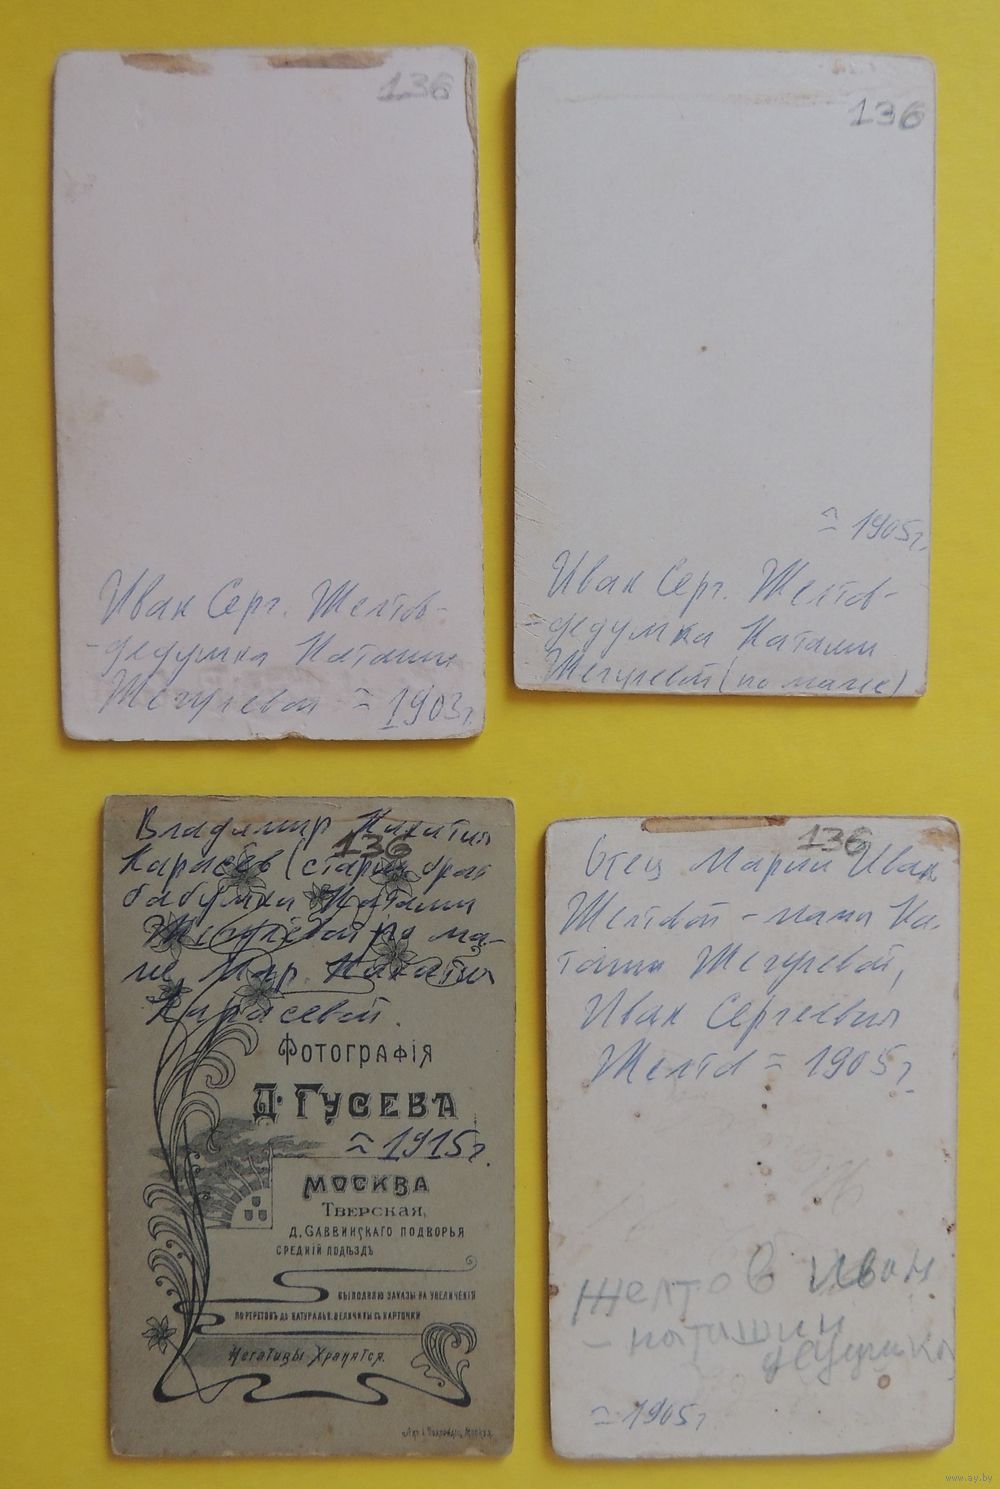 136
Иван Серг. Желтов-
-дедушка Наташи
Жегулевой ≈ 1903г.
136
≈ 1905г.
Иван Серг. Желтов-
-дедушка Наташи
Жегулевой (по маме)
Владимир
136
Карасёв (старш брат
бабушки Наташи
Жегулёвой по ма-
ме, Мар.
Карасевой.
Фотографія
Д. Гусева
≈ 1915г.
Москва
Тверская,
д. Саввинскаго подворья
средній подъѣздъ
выполняю заказы на увеличенія
портретовъ до натуральн. величины съ карточки
Негативы хранятся.
Москва.
136
Отец Марии Иван.
Желтовой - мамы На-
таши Жегулевой,
Иван Сергеевич
Желтов ≈ 1905г.
Желтов Иван
- наташин
дедушка
≈ 1905г
www.ay.by